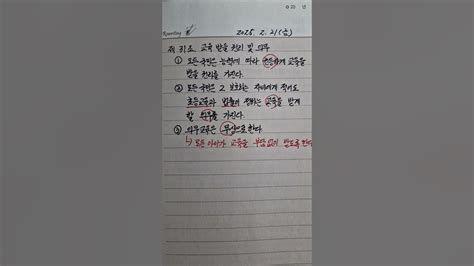 2025. 2. 21(금)
제 31조 교육 받을 권리 및 의무
① 모든 국민은 능력에 따라 균등하게 교육을
받을 권리를 가진다.
② 모든 국민은 그 보호하는 자녀에게 적어도
초등교육과 법률이 정하는 교육을 받게
할 의무를 가진다.
③ 의무교육은 무상으로 한다.
↳ 모든 아이가 교육을 부담없이 받도록 한다